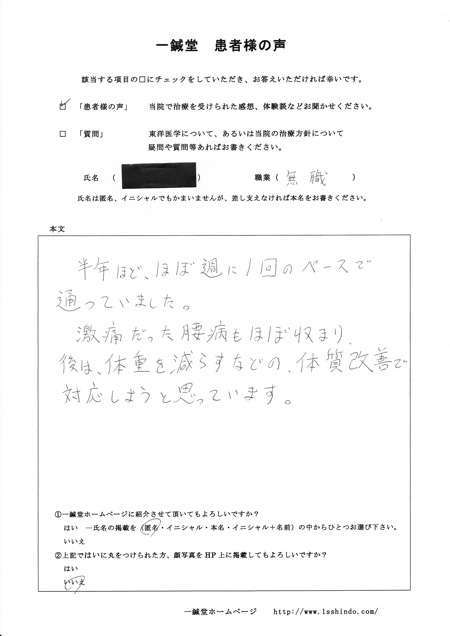 一鍼堂 患者様の声
該当する項目の□にチェックをしていただき、お答えいただければ幸いです。
☑ 「患者様の声」 当院で治療を受けられた感想、体験談などお聞かせください。
□ 「質問」 東洋医学について、あるいは当院の治療方針について
疑問や質問等あればお書きください。
氏名 ( ) 職業 ( 無職 )
氏名は匿名、イニシャルでもかまいませんが、差し支えなければ本名をお書きください。
本文
半年ほど、ほぼ週に1回のペースで
通っていました。
激痛だった腰痛もほぼ収まり、
後は、体重を減らすなどの、体質改善で
対応しようと思っています。
①一鍼堂ホームページに紹介させて頂いてもよろしいですか?
はい …氏名の掲載を(匿名・イニシャル・本名・イニシャル+名前)の中からひとつお選び下さい。
いいえ
②上記ではいに丸をつけられた方、顔写真をHP上に掲載してもよろしいですか?
はい
いいえ
一鍼堂ホームページ http://www.1sshindo.com/